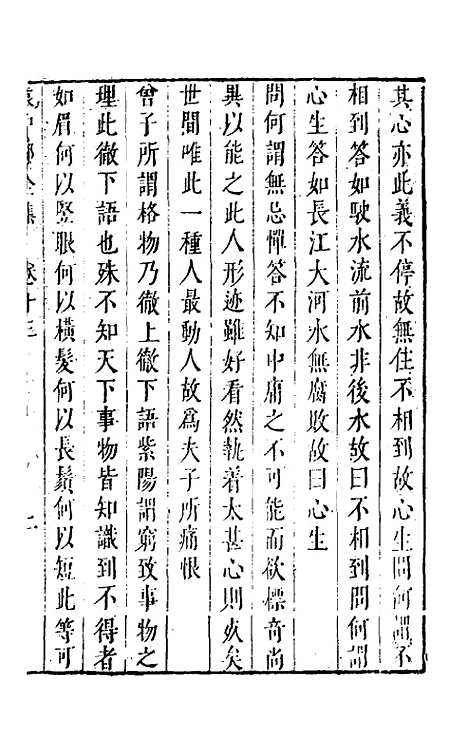 其心亦此義不停故無住不相到故心生問何謂不
相到答如駛水流前水非後水故曰不相到問何謂
心生答如長江大河水無腐敗故曰心生
問何謂無忌憚答不知中庸之不可能而欲標奇尚
異以能之此人形迹雖好看然執着太甚心則死矣
世間唯此一種人最動人故為夫子所痛恨
曾子所謂格物乃徹上徹下語紫陽謂窮致事物之
理此徹下語也殊不知天下事物皆知識到不得者
如眉何以竪眼何以橫髮何以長鬚何以短此等可
袁中郎全集 卷十三